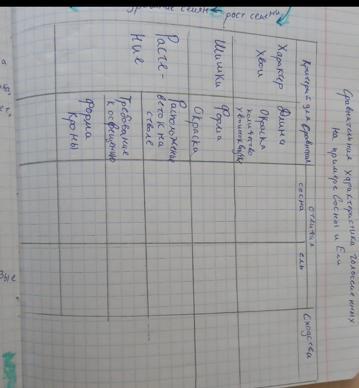 рост семени
Сравнительная характеристика голосеменных
на примере Сосны и Ели
Критерий для сравнения
отличия
сходства
сосна
ель
Характер
Хвои
Длина
Окраска
количество
хвоинок в пучке
Шишки
Форма
Окраска
Расте-
ние
Расположение
веток на
стволе
Требование
к освещению
Форма
кроны